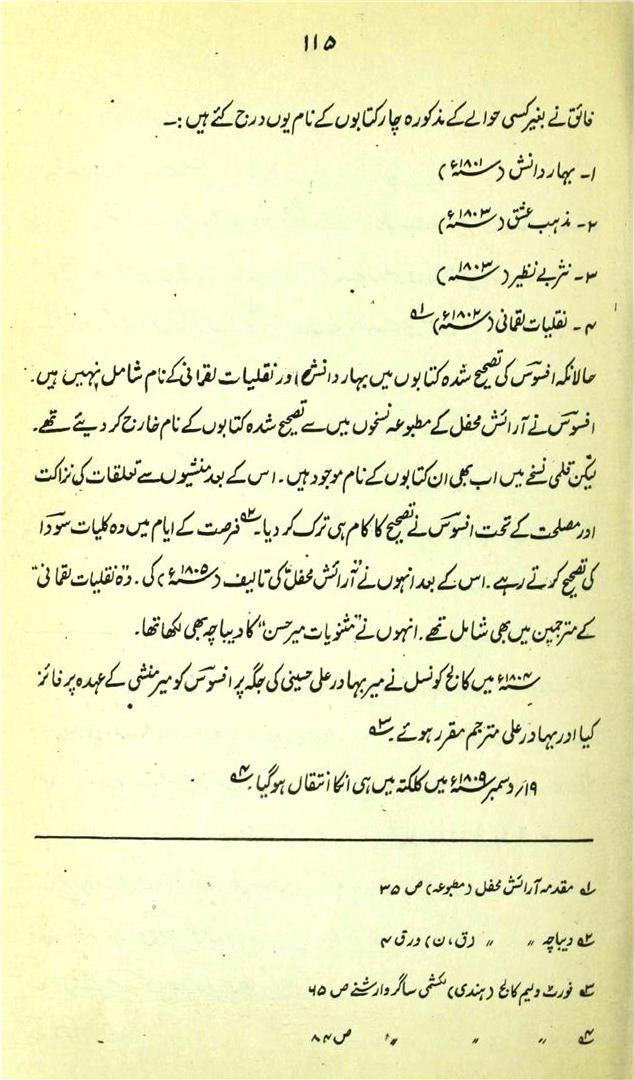 ۱۱۵
فائق نے بغیر کسی حوالے کے مذکورہ چار کتابوں کے نام یوں درج کئے ہیں :۔
۱۔ بہار دانش (سنہ ۱۸۰۱ء)
۲۔ مذہب عشق (سنہ ۱۸۰۳ء)
۳۔ نثر بے نظیر (سنہ ۱۸۰۳)
۴۔ نقلیات لقمانی (سنہ ۱۸۰۲ء) ؂۱
حالانکہ افسوؔس کی تصحیح شدہ کتابوں میں بہار دانش اور نقلیات لقمانی کے نام شامل نہیں ہیں۔
افسوؔس نے آرائش محفل کے مطبوعہ نسخوں میں سے تصحیح شدہ کتابوں کے نام خارج کر دیئے تھے۔
لیکن قلمی نسخے میں اب بھی ان کتابوں کے نام موجود ہیں۔ اس کے بعد منشیوں سے تعلقات کی نزاکت
اور مصلحت کے تحت افسوؔس نے تصحیح کا کام ہی ترک کر دیا۔ ؂۲ فرصت کے ایام میں وہ کلیات سوؔدا
کی تصحیح کرتے رہے۔ اس کے بعد انہوں نے "آرائش محفل" کی تالیف (سنہ ۱۸۰۵ء) کی۔ وہ "نقلیات لقمانی"
کے مترجمین میں بھی شامل تھے۔ انہوں نے "مثنویات میر حسن" کا دیباچہ بھی لکھا تھا۔
سنہ ۱۸۰۴ء میں کالج کونسل نے میر بہادر علی حسینی کی جگہ پر افسوؔس کو میر منشی کے عہدہ پر فائز
کیا اور بہادر علی مترجم مقرر ہوئے۔ ؂۳
۱۹؍ دسمبر سنہ ۱۸۰۹ء میں کلکتہ میں ہی انکا انتقال ہو گیا۔ ؂۴
؂۱ مقدمہ آرائش محفل (مطبوعہ) ص ۳۵
؂۲ دیباچہ " " (ق، ن) ورق ۴
؂۳ فورٹ ولیم کالج (ہندی) لکشمی ساگر وارشنے ص ۶۵
؂۴ " " " ص ۸۴